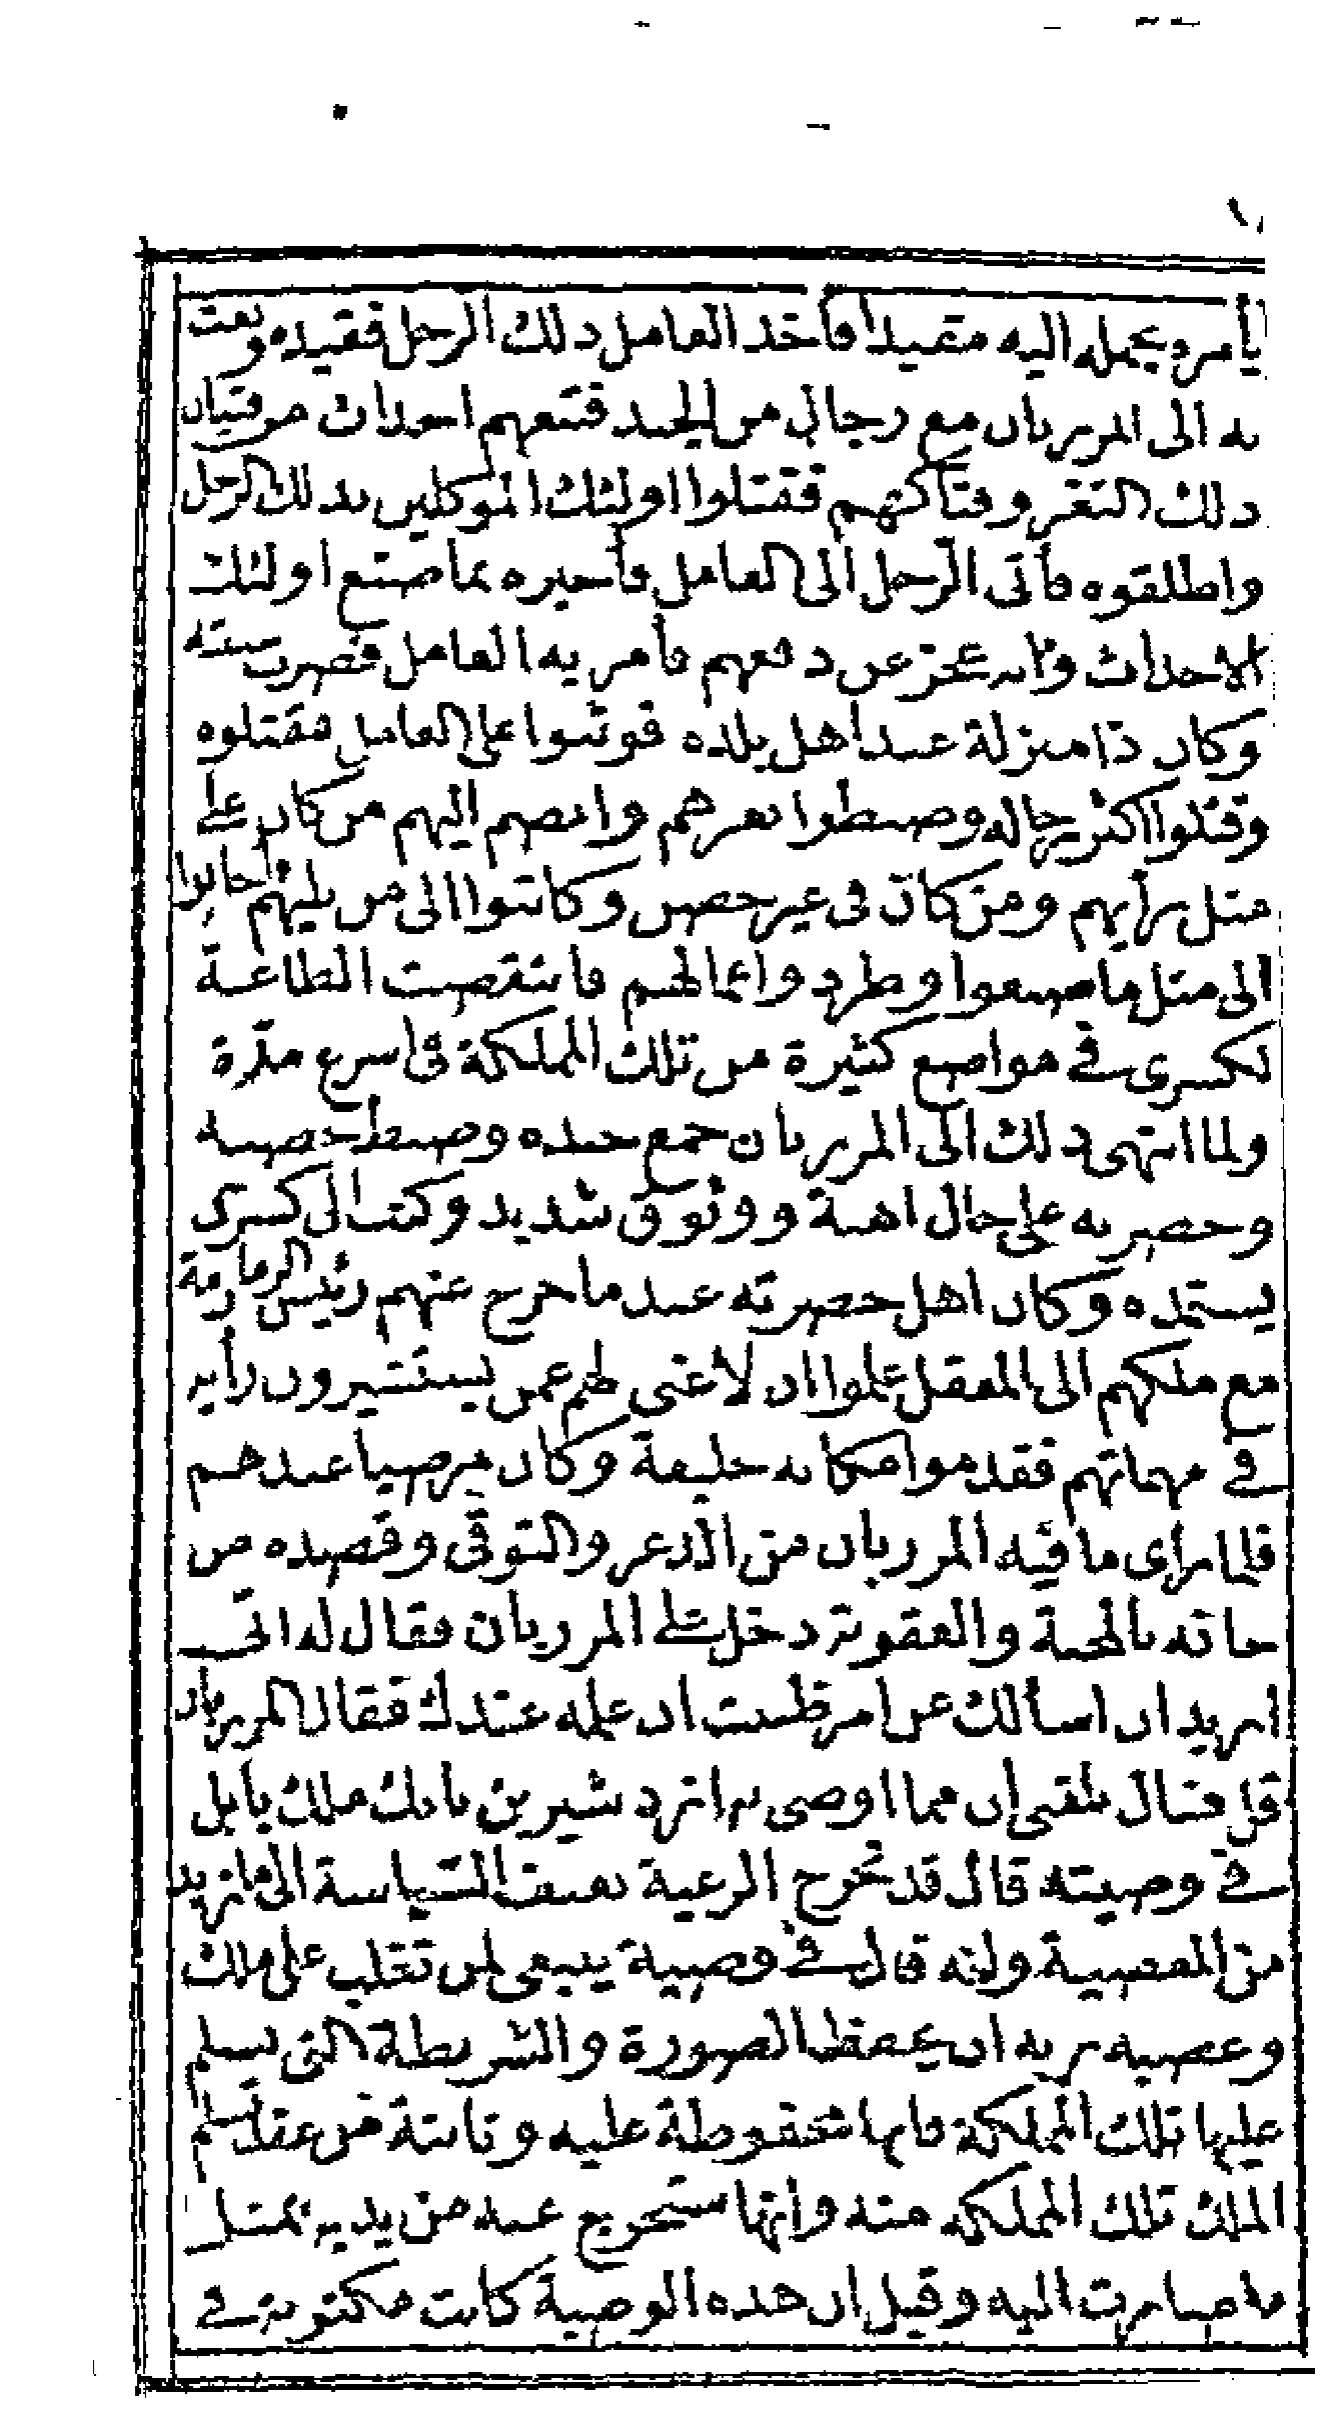 يأمره بحمله اليه مقيدا فأخذ العامل ذلك الرجل فقيده وبعث
به الى المرزبان مع رجال من الجند فتبعهم احداث من فتيان
ذلك الثغر وفتاكهم فقتلوا اولئك الموكلين بذلك الرجل
واطلقوه فأتى الرجل الى العامل فأخبره بما صنع اولئك
الاحداث وانه عجز عن دفعهم فأمر به العامل فضرب عنقه
وكان ذا منزلة عند اهل بلده فوثبوا على العامل فقتلوه
وقتلوا اكثر رجاله وضبطوا ثغرهم وانضم اليهم من كان على
مثل رأيهم ومن كان في غير حصن وكاتبوا الى من يليهم فأجابوا
الى مثل ما صنعوا وطرد واعمالهم فانتقضت الطاعة
لكسرى في مواضع كثيرة من تلك المملكة في اسرع مدّة
ولما انتهى ذلك الى المرزبان جمع جنده وضبط حصنه
وحضر به على حال اهبة ووثوق شديد وكتب الى كسرى
يستمده وكان اهل حضرته عند ما خرج عنهم رئيس الزمازمة
مع ملكهم الى المعقل علموا ان لا غنى لهم عمن يستشيرون رأيه
في مهماتهم فقدموا مكانه خليفة وكان مرضيا عندهم
فلما رأى ما فيه المرزبان من الذعر والتوقي وقصده من
خانه بالمحنة والعقوبة دخل على المرزبان فقال له اني
اريد ان اسألك عن امر ظننت ان علمه عندك فقال المرزبان
قل فقال بلغني ان مما اوصى به ازدشير بن بابك ملك بابل
في وصيته قال قد تخرج الرعية بعنف السياسة الى ما تريد
من المعصية وانه قال في وصية ينبغي لمن تغلب على ملك
وعصبه ربه ان يحفظ الصورة والشريطة التي تسلم
عليها تلك المملكة فانها محفوظة عليه وثابتة في عقد تسلم
الملك تلك المملكة منه وانها ستخرج عنه من يديه بمثل
ما صارت اليه وقيل ان هذه الوصية كانت مكتوبة في